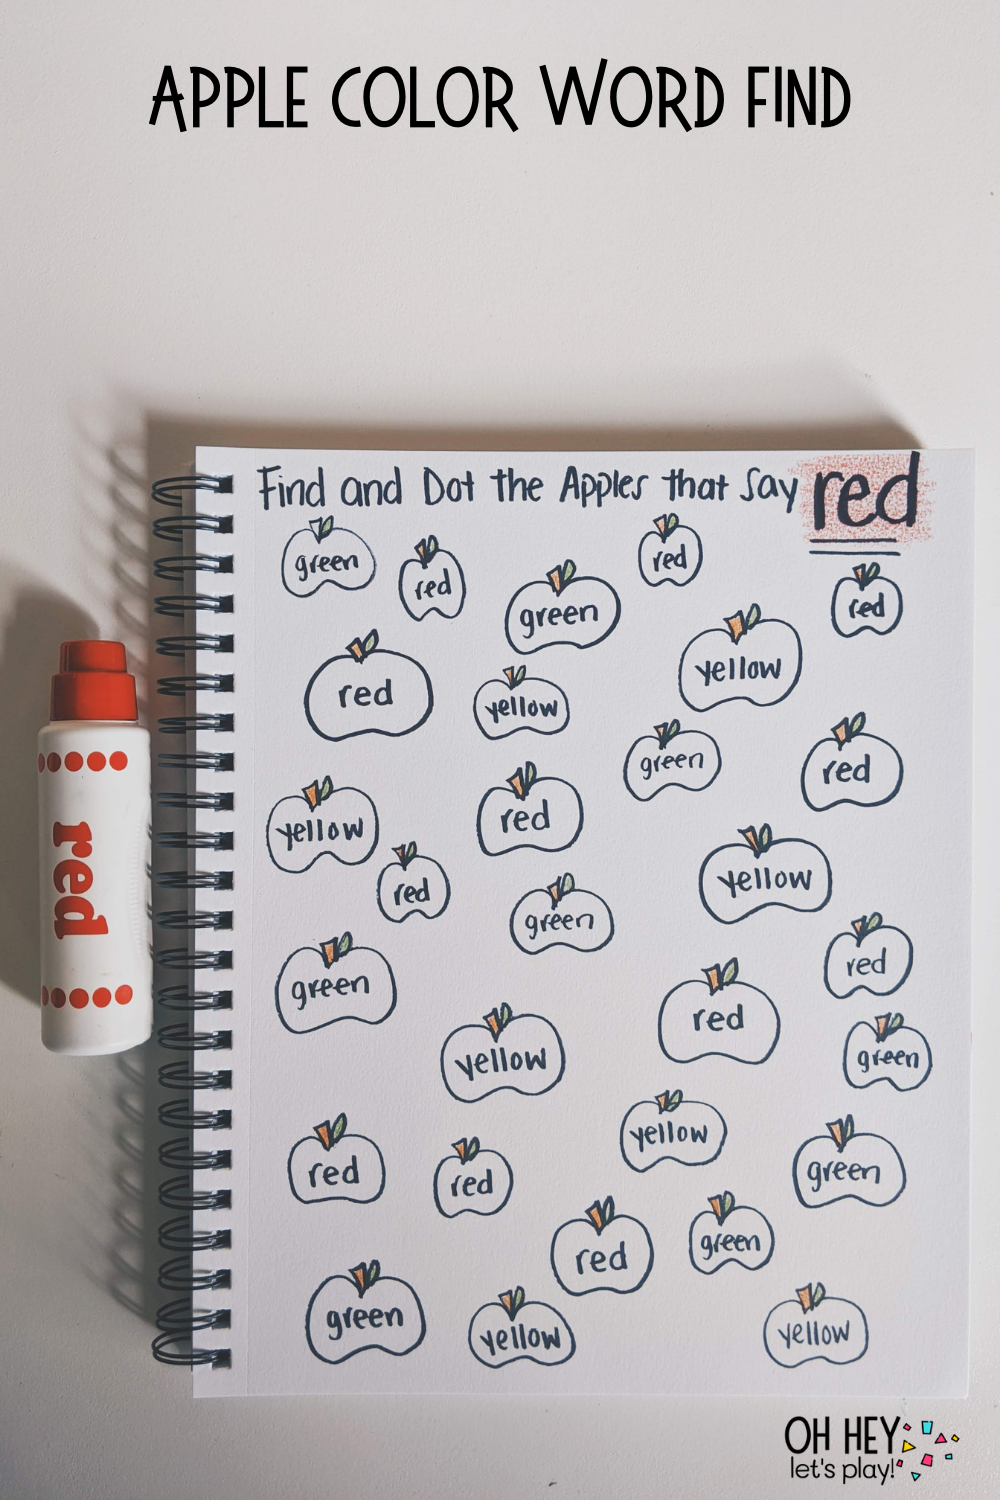 APPLE COLOR WORD FIND
Find and Dot the Apples that Say red
green
red
green
red
red
red
yellow
yellow
green
red
yellow
red
red
green
yellow
red
green
yellow
red
green
red
red
yellow
green
red
green
green
yellow
yellow
red
OH HEY
let's play!